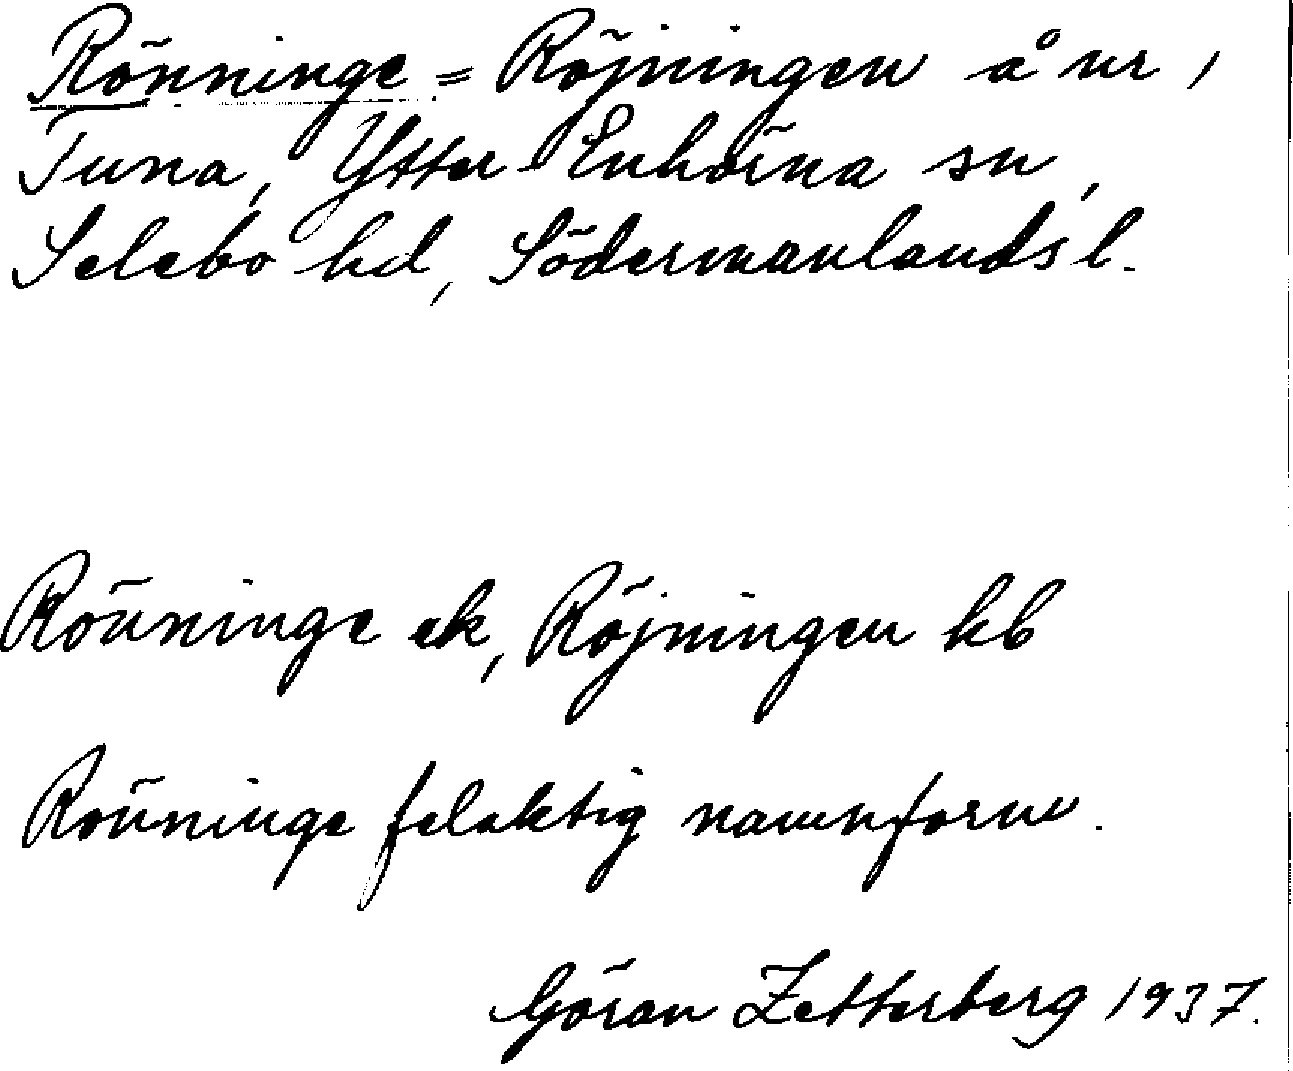 Rönninge = Röjningen å nr 1
Tuna, Ytter-Enhörna sn,
Selebo hd, Södermanlands l.
Rönninge ek, Röjningen kb
Rönninge felaktig namnform.
Göran Zetterberg 1937.